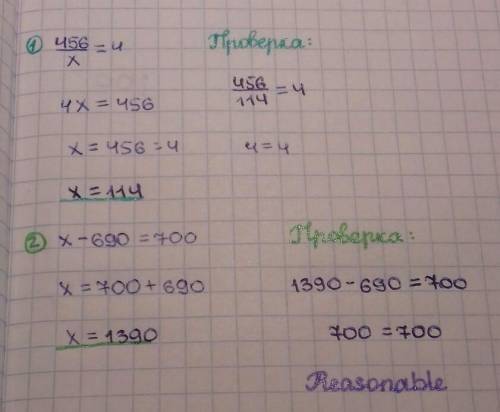 ① 456/x = 4
4x = 456
x = 456 = 4
x = 114
Проверка:
456/114 = 4
4 = 4
② x - 690 = 700
x = 700 + 690
x = 1390
Проверка:
1390 - 690 = 700
700 = 700
Reasonable